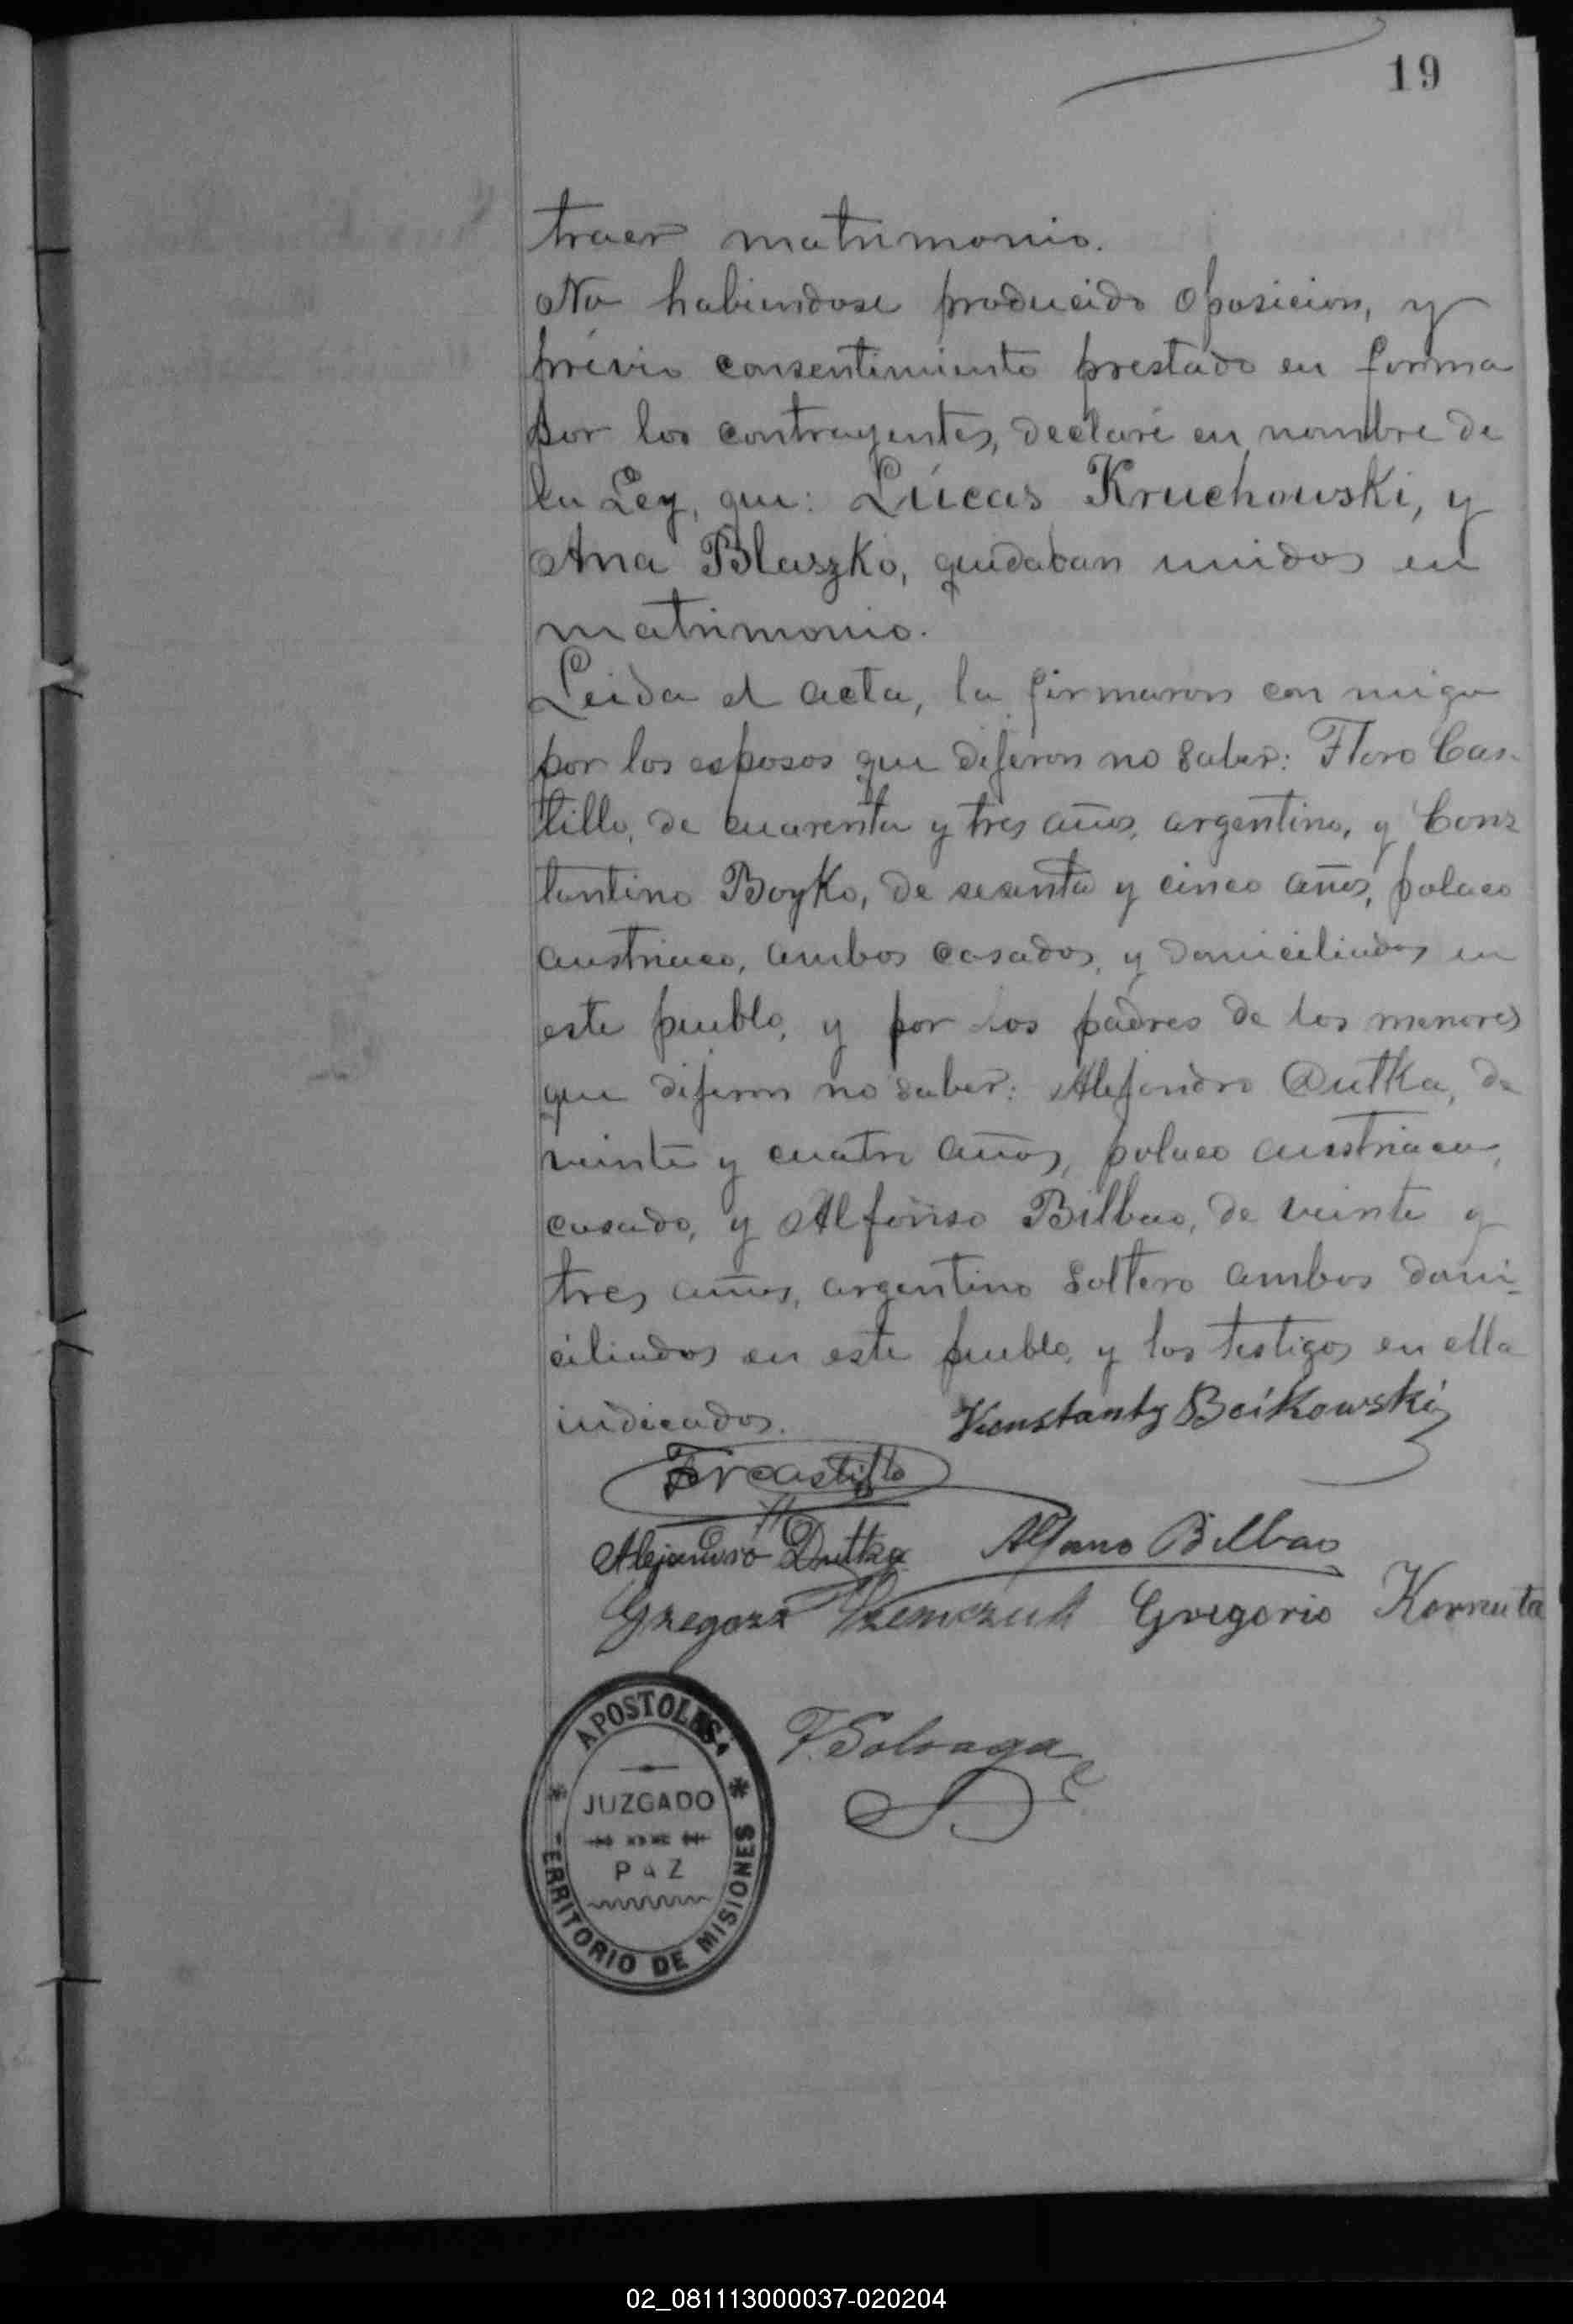 19
traer matrimonio.
No habiendose producido oposicion, y
prévio consentimiento prestado en forma
por los contrayentes, declaré en nombre de
la Ley, que: Lúcas Kruchowski, y
Ana Blaszko, quedaban unidos en
matrimonio.
Leida el acta, la firmaron con migo
por los esposos que dijeron no saber: Floro Cas-
tillo, de cuarenta y tres años, argentino, y Cons
tantino Boyko, de sesenta y cinco años, polaco
austriaco, ambos casados, y domiciliados en
este pueblo, y por los padres de los menores
que dijeron no saber: Alejandro Dutka, de
veinte y cuatro años, polaco austriaco,
casado, y Alfonso Bilbao, de veinte y
tres años, argentino soltero ambos domi-
ciliados en este pueblo, y los testigos en ella
indicados. Konstanty Boikowski
Castillo
Alejandro Dutka Alfonso Bilbao
Grzegorz Gregorio Kornuta
F. Soloaga
APOSTOLES
JUZGADO
PAZ
TERRITORIO DE MISIONES
02_081113000037-020204